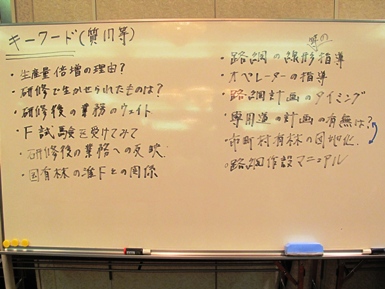 キーワード(質問等)
・生産量倍増の理由?
・研修で生かせられたものは?
・研修後の業務のウェイト
・F試験を受けてみて
・研修後の業務への反映
・国有林の准Fとの関係
等の
・路網の線形指導
・オペレーターの指導
・路網計画のタイミング
・専用道の計画の有無は?
・市町村有林の団地化
・路網作設マニュアル